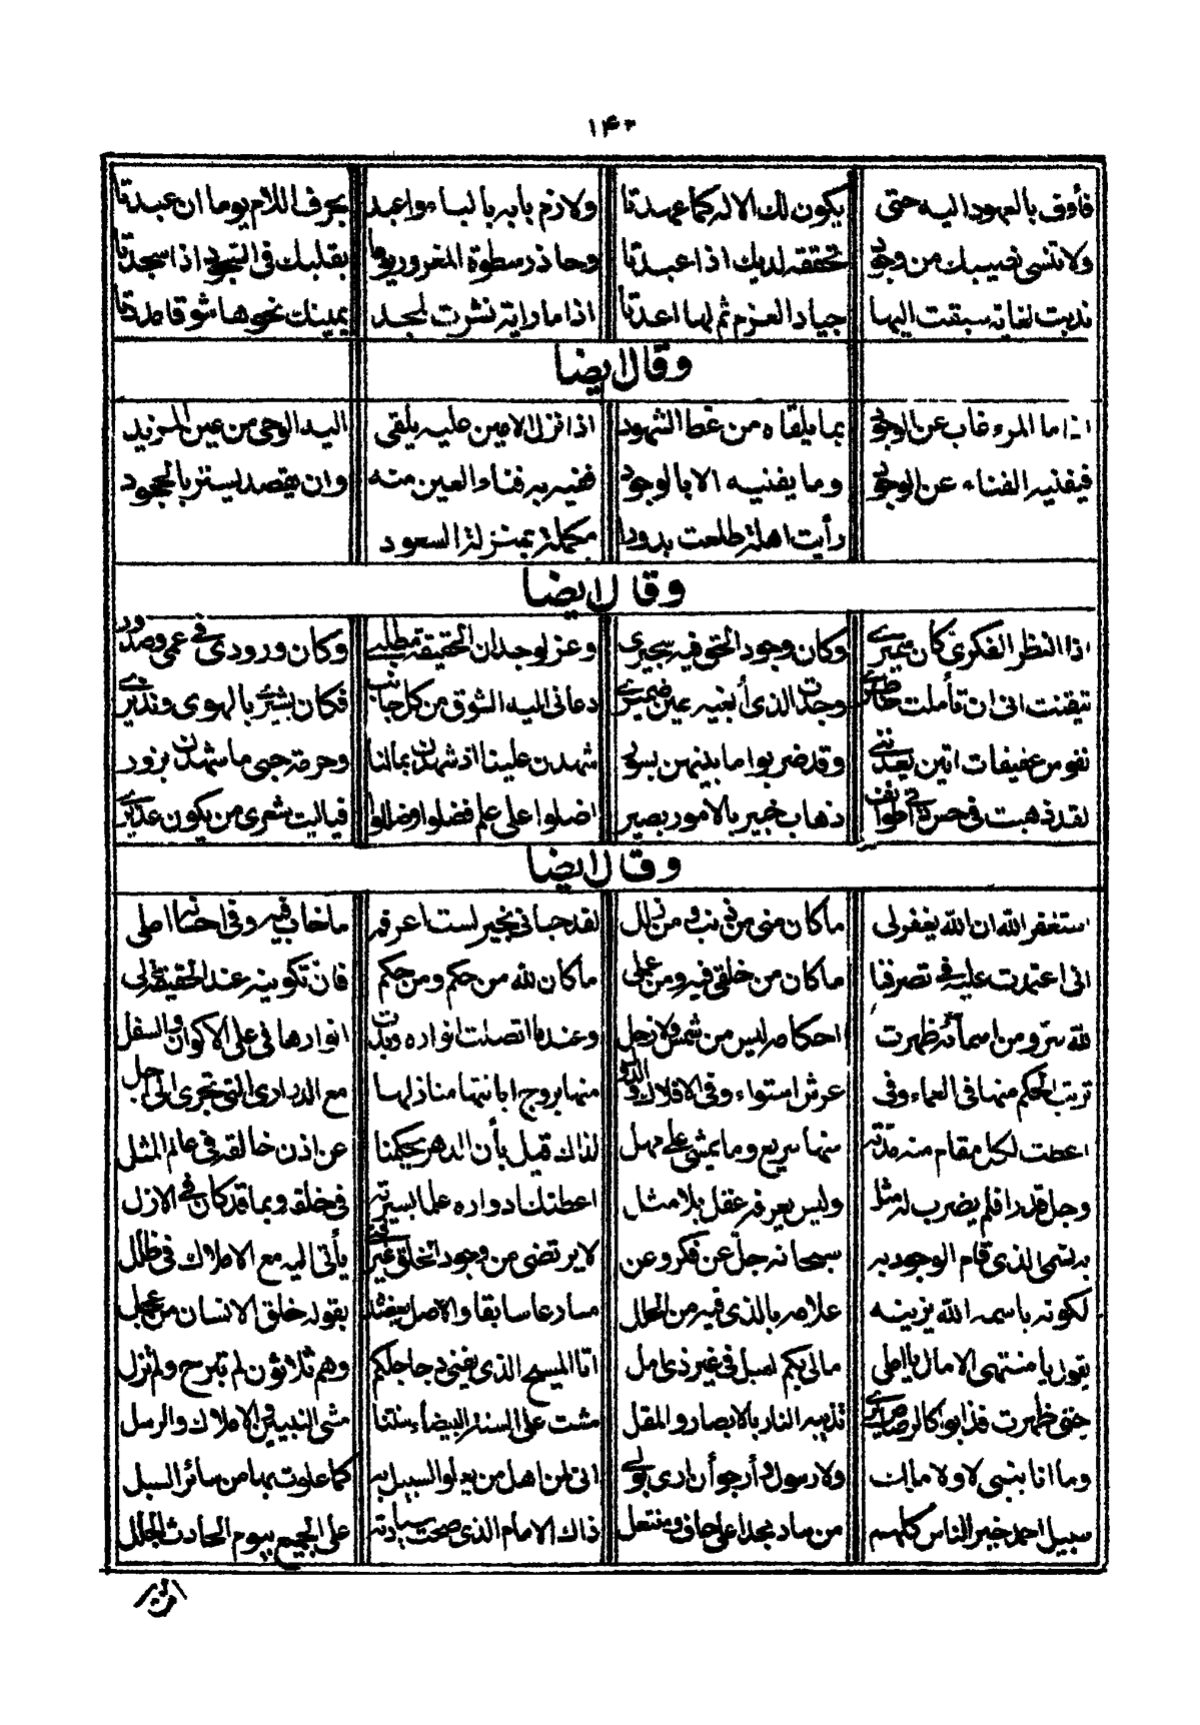 ۱۴۳
فأوف بالعهود اليه حتى يكون لك الاله كما عهدتا ولازم بابه بالباء واعبد بحرف اللام يوما ان عبدتا
ولا تنسى نصيبك من وجود تحققه لديك اذا عبدتا وحاذر سطوة المغرور يوما بقلبك في السجود اذا سجدتا
ندبت لغاية سبقت اليها جياد العزم ثم لها اعدتا اذا ما راية نشرت لمجد يمينك نحوها شوقا مددتا
وقال ايضا
اذا ما المرء غاب عن الوجود بما يلقاه من غط الشهود اذا نزل الامين عليه يلقى اليه الوحى من عين المزيد
فيفنيه الفناء عن الوجود وما يفنيه الا بالوجود ففيه به فناء العين منه وان يقصد ليستر بالجحود
رأيت اهلة طلعت بدورا مكملة بمنزلة السعود
وقال ايضا
اذا النظر الفكرى كان سميرى وكان وجود الحق فيه سجيرى وعز لوجدان الحقيقة مطلبى وكان ورودى فى عمى وصدورى
تيقنت انى ان تأملت خاطرى وجدت الذى أبغيه عين ضميرى دعانى اليه الشوق من كل جانب فكان بشيرى بالهوى ونذيرى
نفوس عفيفات اتين يعدننى وقد ضربوا ما بينهن بسور شهدن علينا اذ شهدن بمالنا وحرمة حبى ما شهدن بزور
لقد ذهبت فى حسن ذاتى طوائف ذهاب خبير بالامور بصير اضلوا على علم فضلوا وضالوا فياليت شعرى من يكون عذيرى
وقال ايضا
استغفر الله ان الله يغفر لى ما كان منى من ذنب ومن زلل لقد حبانى بخير لست اعرفه ما خاب فيه وفى احسانه املى
انى اعتمدت عليه فى تصرفنا ما كان من خلقى فيه ومن عملى ما كان لله من حكم ومن حكم فان تكوينه عند الحقيقة لى
لله سر ومن اسمائه ظهرت احكامه ليس من شمس ولا زحل وعندما اتصلت انواره وبدت انوارها فى على الاكوان والسفل
ترتب الحكم منها فى العماء وفى عرش استواء وفى الافلاك والدول منها بروج ابانتها منازلها مع الدرارى التى تجرى الى اجل
اعطت لكل مقام منه مدته منها سريع وما يمشى على مهل لذاك قيل بأن الدهر يحكمنا عن اذن خالقه فى عالم المثل
وجل قدرا فلم يضرب له مثل وليس يعرفه عقل بلا مثل اعطتك ادواره علما بسيرته فى خلقه وبما قد كان فى الازل
به تسمى الذى قام الوجود به سبحانه جل عن فكر وعن لا يرتضى من وجود الخلق غير فتى يأتى اليه مع الاملاك فى ظلل
لكونه باسمه الله يزينه علامه بالذى فيه من الحلل مسارعا سابقا والاصل يعضده بقوله خلق الانسان من عجل
يقول يا منتهى الامال يا املى مالى بكم لعبل فى غير ذى امل انا المسيح الذى يفنى دجاجلكم وهم ثلاثون لم تبرح ولم تزل
حتى ظهرت فذابوا كالرصاص تذيبه النار بالابصار والمقل مشت على السنة البيضاء سنتنا مشى النبيين والاملاك والرسل
وما انا بنبى لا ولا ملك ولا رسول وأرجو أن ارى بولى انى لمن اهل من يعلو السبيل به كما علوت بها من سائر السبل
سبيل احمد خير الناس كلهم من ساد مجدا على حاف ومنتعل ذاك الامام الذى صحت سيادته على الجميع بيوم الحادث الجلل